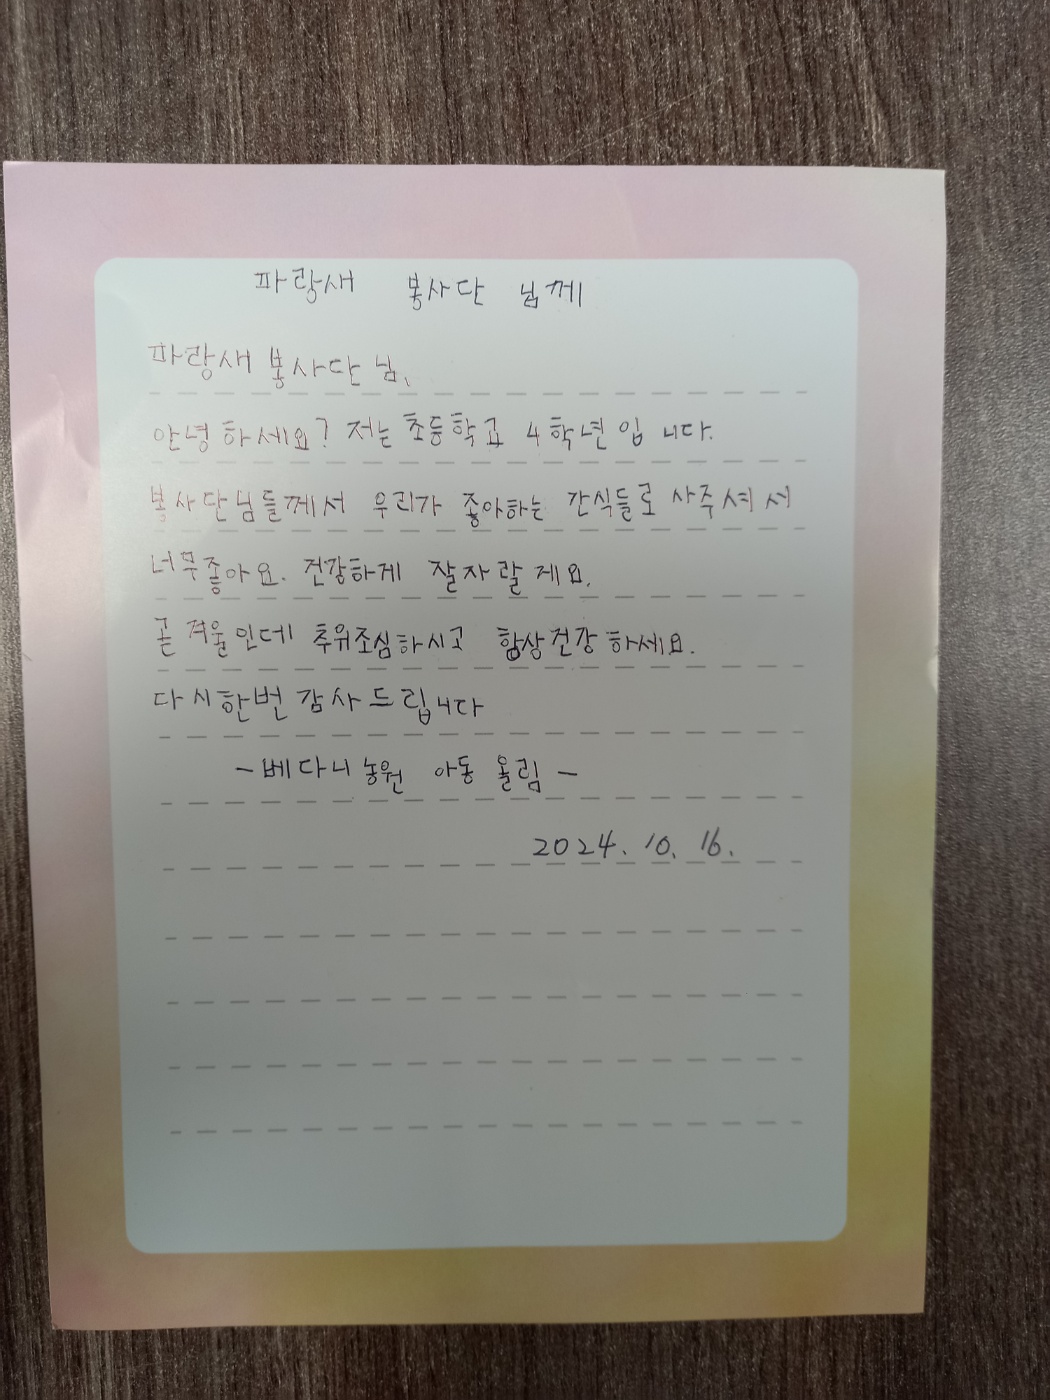 파랑새 봉사단 님께
파랑새 봉사단 님,
안녕하세요? 저는 초등학교 4학년입니다.
봉사단님들께서 우리가 좋아하는 간식들로 사주셔서
너무좋아요. 건강하게 잘자랄게요.
곧 겨울인데 추위조심하시고 항상건강하세요.
다시한번 감사드립니다
-베다니농원 아동 올림-
2024. 10. 16.